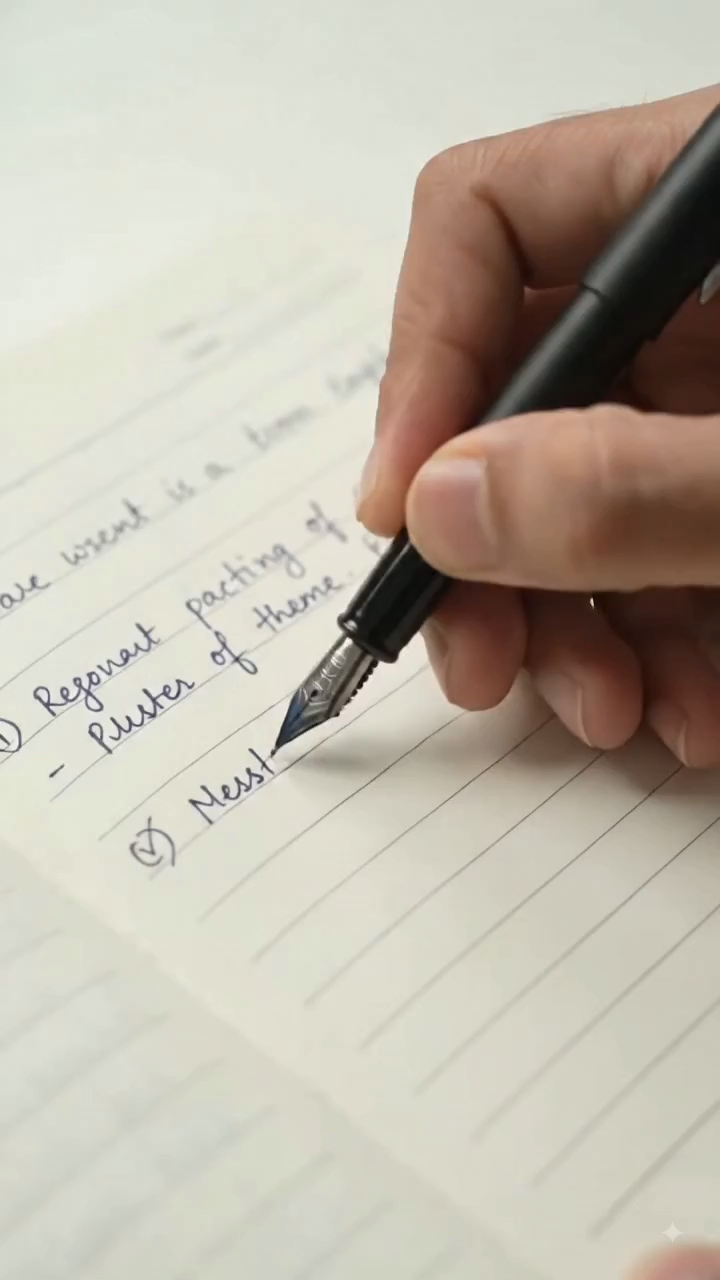 are wsent is a
① Regonart pacting of
- Pluster of theme.
Messt